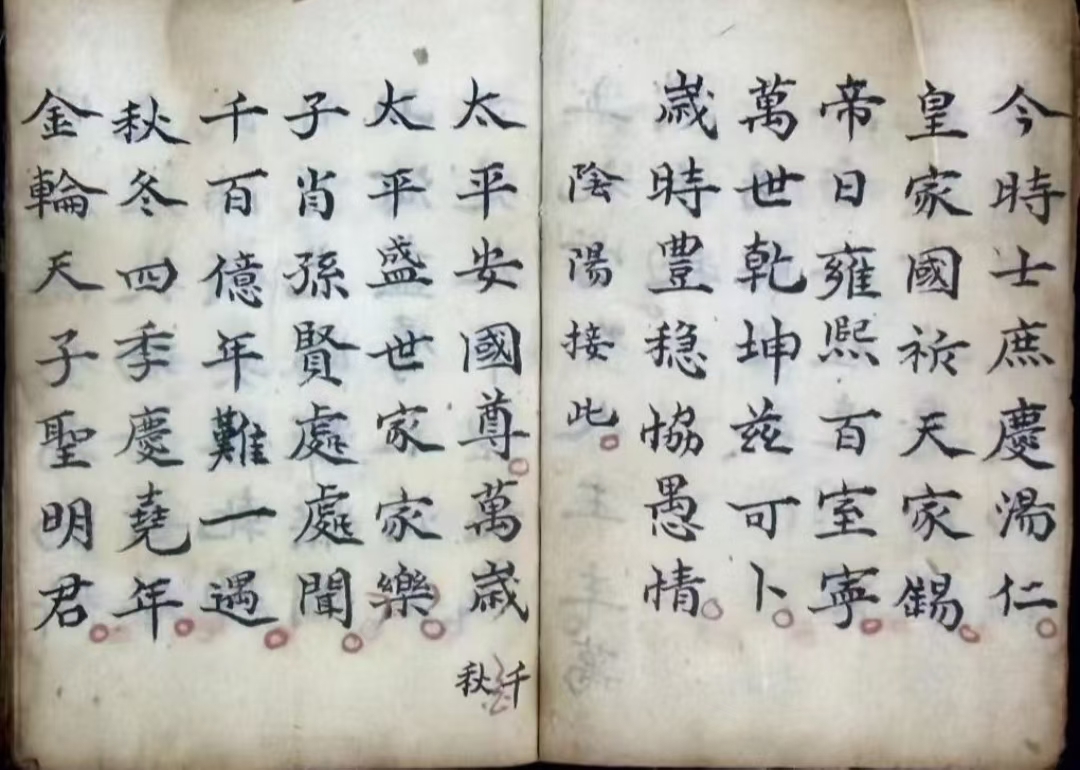 今時士庶慶湯仁
皇家國祈天家錫
帝日雍熙百室寧
萬世乾坤茲可卜
歲時豐稳協愚情
陰陽接此
太平安國尊萬歲
千秋
太平盛世家家樂
子肖孫賢處處聞
千百億年難一遇
秋冬四季慶堯年
金輪天子聖明君